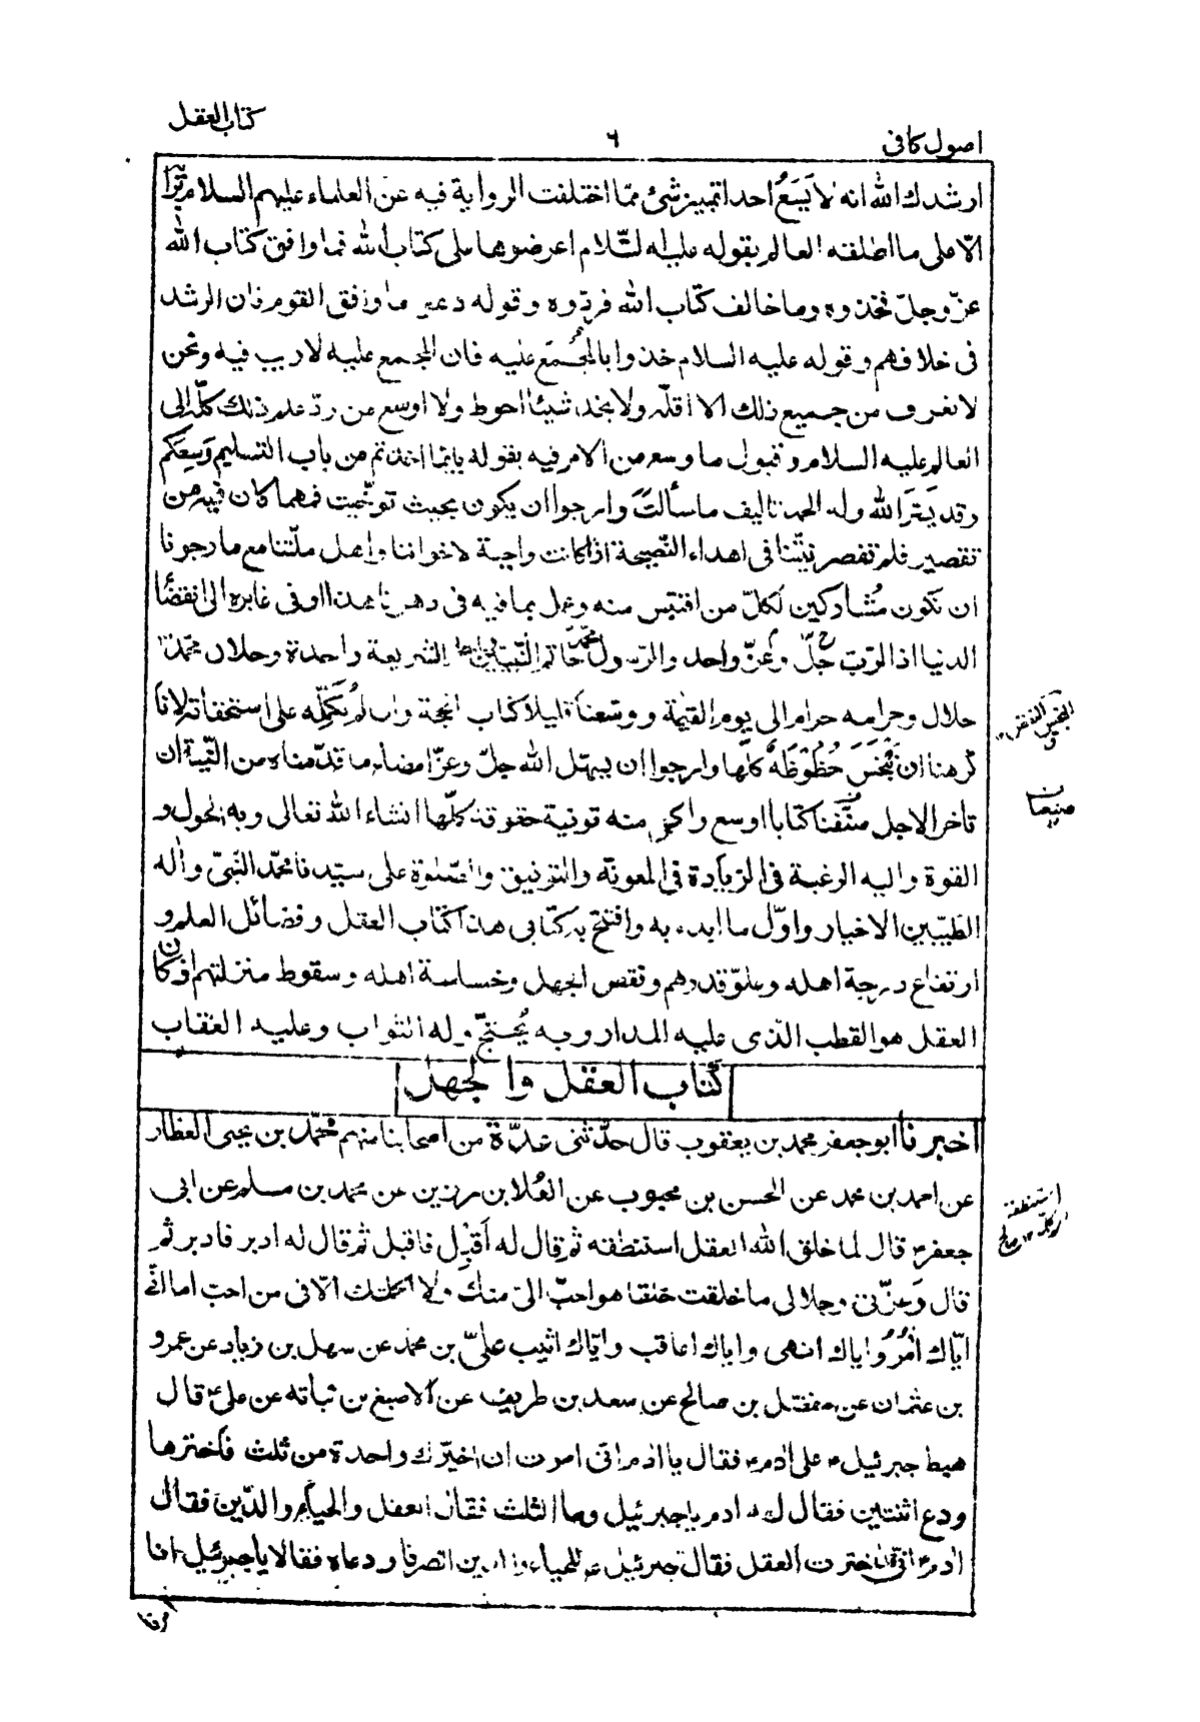 كتاب العقل
٦
اصول كافى
ارشدك الله انه لا يَسَعُ احدا تميز شئ مما اختلفت الرواية فيه عن العلماء عليهم السلام برأ
الّا على ما اطلقه العالم بقوله عليه السّلام اعرضوها على كتاب الله فما وافق كتاب الله
عزّ وجلّ فخذوه وما خالف كتاب الله فردّوه وقوله دعوا ما وافق القوم فان الرشد
فى خلافهم وقوله عليه السلام خذوا بالمُجمَع عليه فان المجمع عليه لا ريب فيه ونحن
لا نعرف من جميع ذلك الا اقلّه ولا نجد شيئا احوط ولا اوسع من ردّ علم ذلك كلّه الى
العالم عليه السلام وقبول ما وسع من الامر فيه بقوله بايّما اخذتم من باب التسليم وَسِعَكم
وقد يَسَّرَ الله وله الحمد تاليف ما سألتَ وارجوا ان يكون بحيث توخّيت فمهما كان فيه من
تقصير فلم تقصر نيّتنا فى اهداء النّصيحة اذ كانت واجبة لاخواننا واهل ملّتنا مع ما رجونا
ان نكون مُشاركين لكلّ من اقتبس منه وعمل بما فيه فى دهرنا هذا وفى غابره الى انقضاء
الدنيا اذ الرّبّ جلّ وعزّ واحد والرّسول محمّد خاتم النّبيّين واحد والشريعة واحدة وحلال محمّد
حلال وحرامه حرام الى يوم القيٰمة ووسّعنا قليلا كتاب الحجة وان لم نُكَمِّله على استحقاقه لانّا
كرهنا ان نَبْخَسَ حُظُوظَهُ كلّها وارجوا ان يسهّل الله جلّ وعزّ امضاء ما قدّمناه من النّيّة ان
تأخر الاجل صنّفنا كتابا اوسع واكمل منه نوفيه حقوقه كلّها انشاء الله تعالى وبه الحول و
القوة واليه الرغبة فى الزيادة فى المعونة والتوفيق والصّلوة على سيّدنا محمّد النّبىّ وآله
الطّيّبين الاخيار واوّل ما ابدء به وافتتح به كتابى هذا كتاب العقل وفضائل العلم و
ارتفاع درجة اهله وعلوّ قدرهم ونقص الجهل وخساسة اهله وسقوط منزلتهم اذ كان
العقل هو القطب الذى عليه المدار وبه يُحتجّ وله الثواب وعليه العقاب
كتاب العقل والجهل
اخبرنا ابو جعفر محمد بن يعقوب قال حدّثنى عدّة من اصحابنا منهم محمّد بن يحيى العطار
عن احمد بن محمد عن الحسن بن محبوب عن العُلا بن رزين عن محمد بن مسلم عن ابى
جعفرؑ قال لما خلق الله العقل استنطقه ثم قال له أقبِل فاقبل ثم قال له ادبر فادبر ثم
قال وَعزّتى وجلالى ما خلقت خلقا هو احبّ الىّ منك ولا اكملتك الّا فى من احبّ اما انّى
ايّاك اٰمُرُ واياك انهى واياك اعاقب وايّاك اثيب علىّ بن محمّد عن سهل بن زياد عن عمرو
بن عثمان عن مفضل بن صالح عن سعد بن طريف عن الاصبغ بن نباته عن علىؑ قال
هبط جبرئيلؑ على ادمؑ فقال يا ادم انّى امرت ان اخيّرك واحدة من ثلث فاخترها
ودع اثنتين فقال له ادم يا جبرئيل وما الثلث فقال العقل والحياء والدّين فقال
ادمؑ انّى قد اخترت العقل فقال جبرئيل ؑ للحياء والدين انصرفا ودعاه فقالا يا جبرئيل انا
امرنا
صنيعان
استنطقه